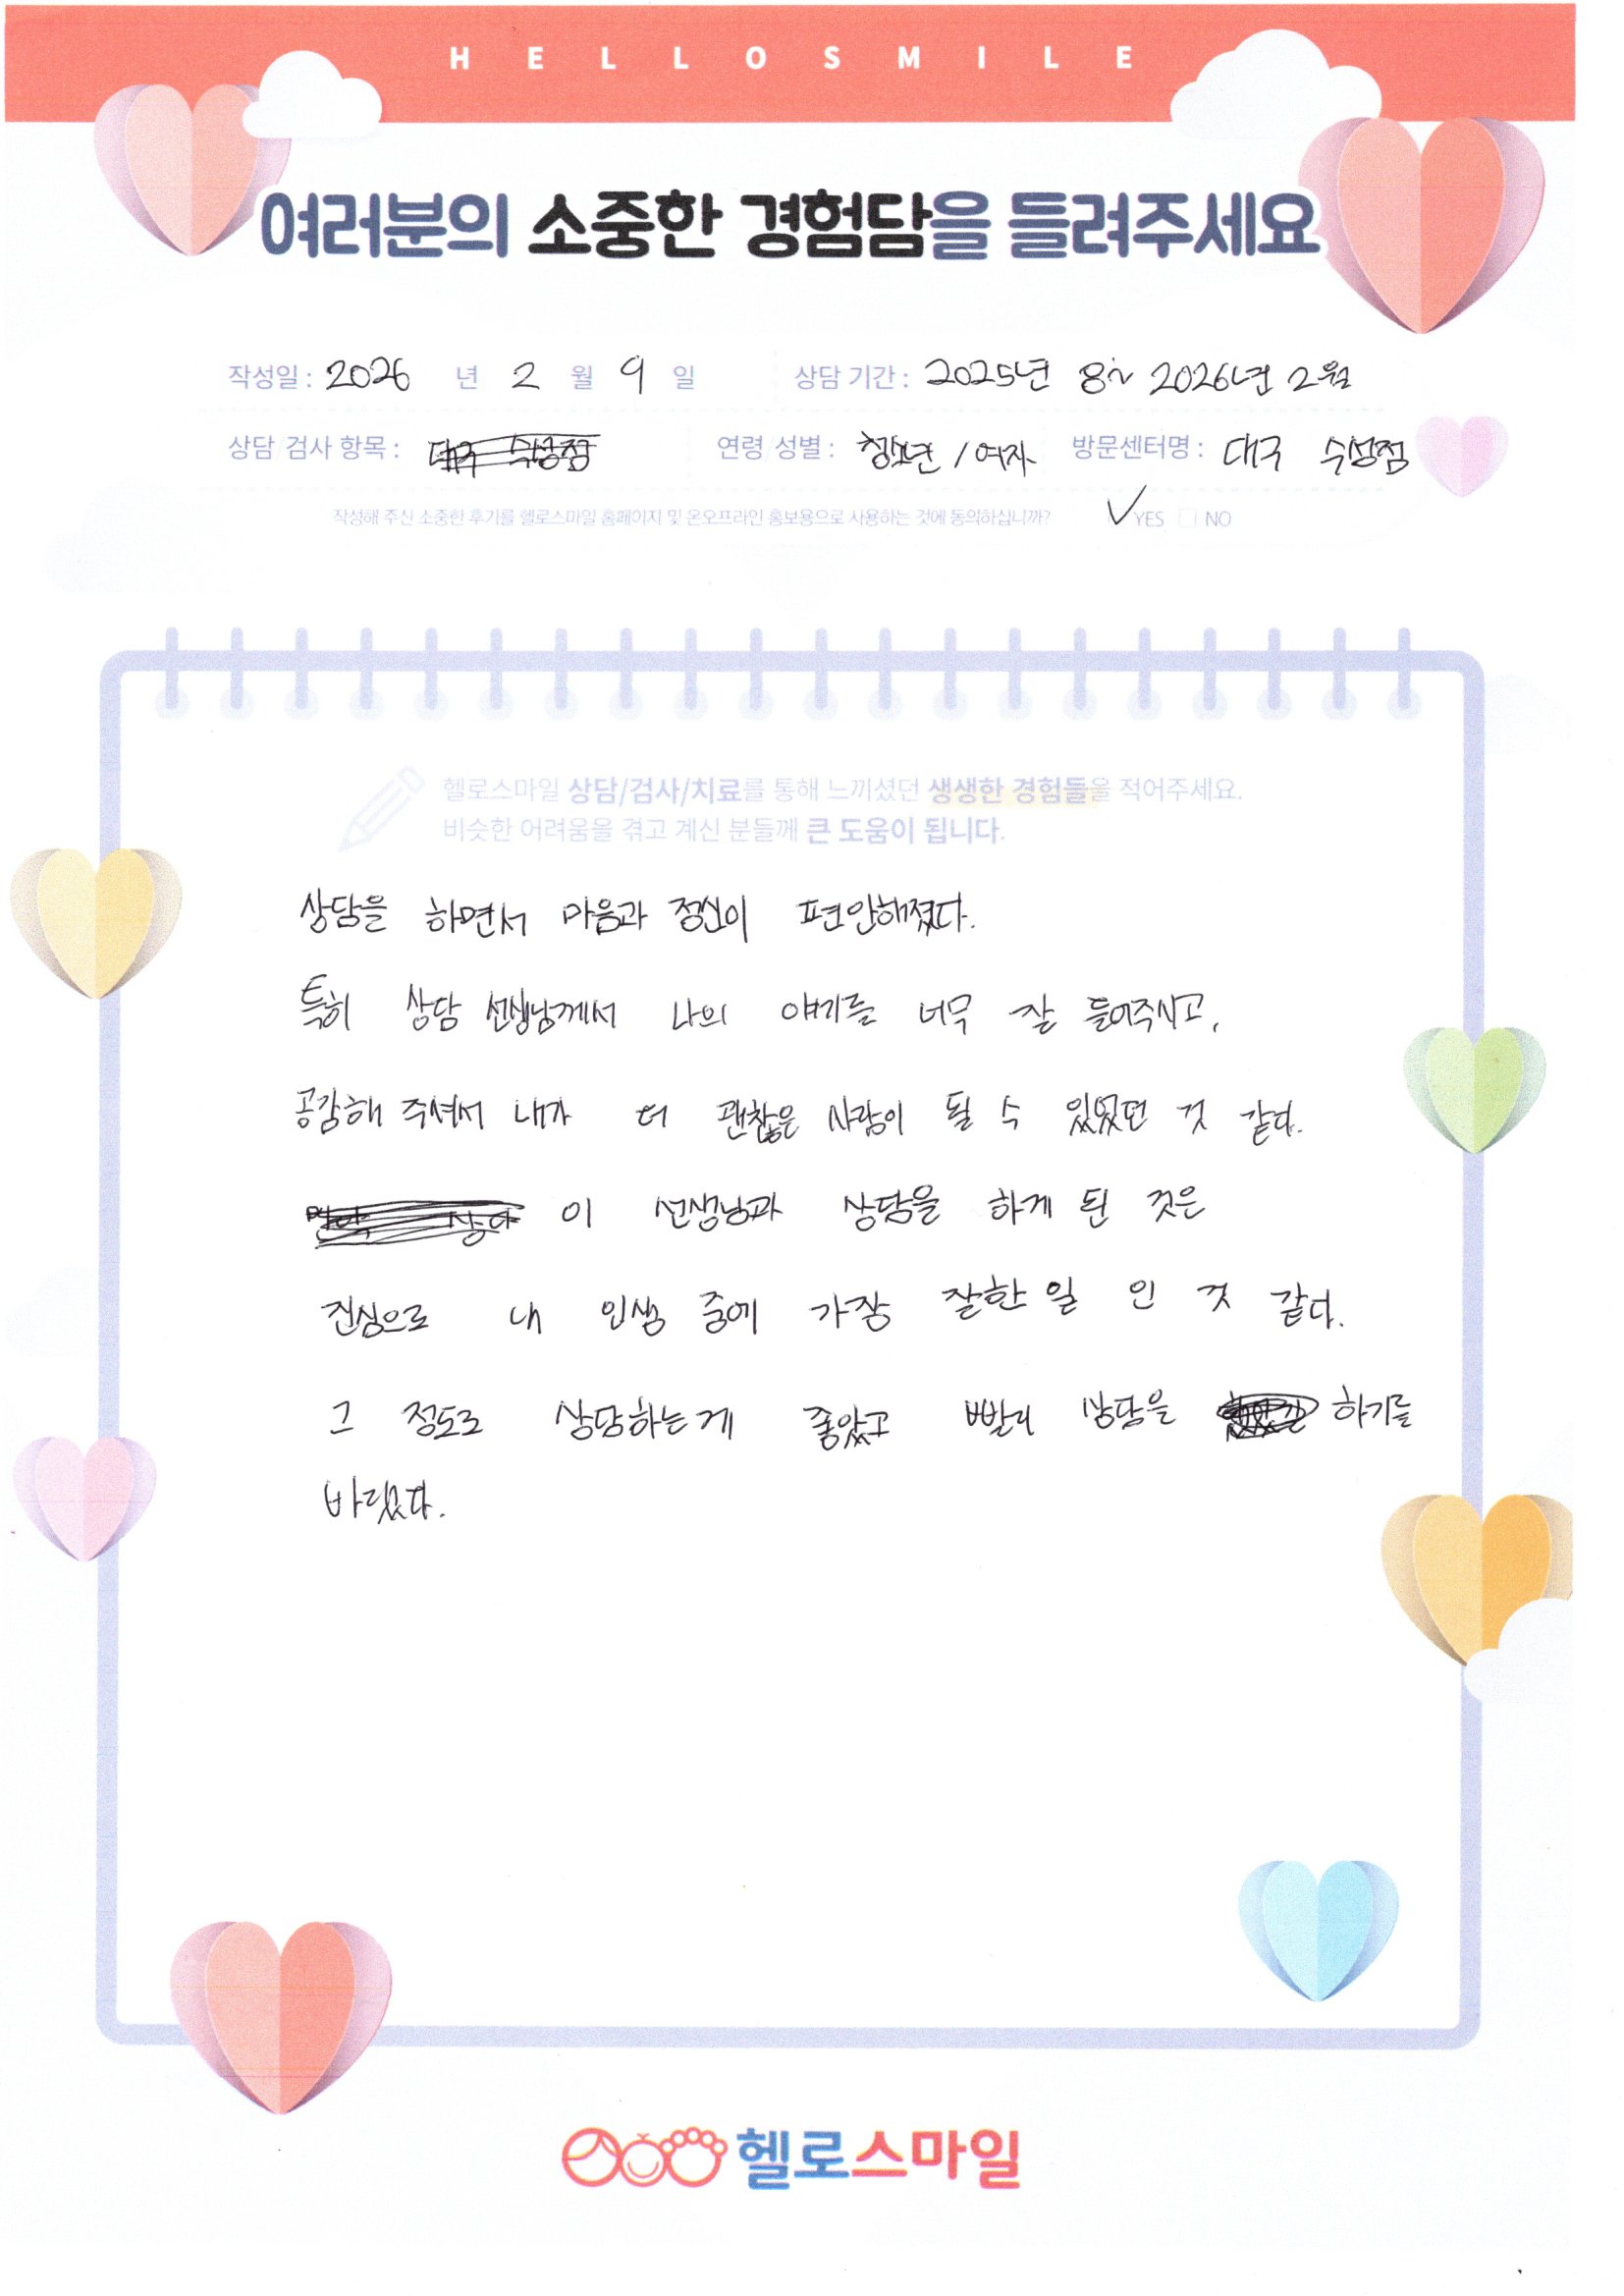 HELLOSMILE
여러분의 소중한 경험담을 들려주세요
작성일 : 2026 년 2 월 9 일 상담 기간 : 2025년 8~ 2026년 2월
상담/검사 항목 : 대구 수성점 연령/성별 : 청소년 / 여자 방문센터명 : 대구 수성점
작성해 주신 소중한 후기를 헬로스마일 홈페이지 및 온오프라인 홍보용으로 사용하는 것에 동의하십니까? ✓YES □ NO
헬로스마일 상담/검사/치료를 통해 느끼셨던 생생한 경험들을 적어주세요.
비슷한 어려움을 겪고 계신 분들께 큰 도움이 됩니다.
상담을 하면서 마음과 정신이 편안해졌다.
특히 상담 선생님께서 나의 얘기를 너무 잘 들어주시고,
공감해 주셔서 내가 더 괜찮은 사람이 될 수 있었던 것 같다.
이 선생님과 상담을 하게 된 것은
진심으로 내 인생 중에 가장 잘한 일 인 것 같다.
그 정도로 상담하는게 좋았고 빨리 상담을 하기를
바랬다.
헬로스마일